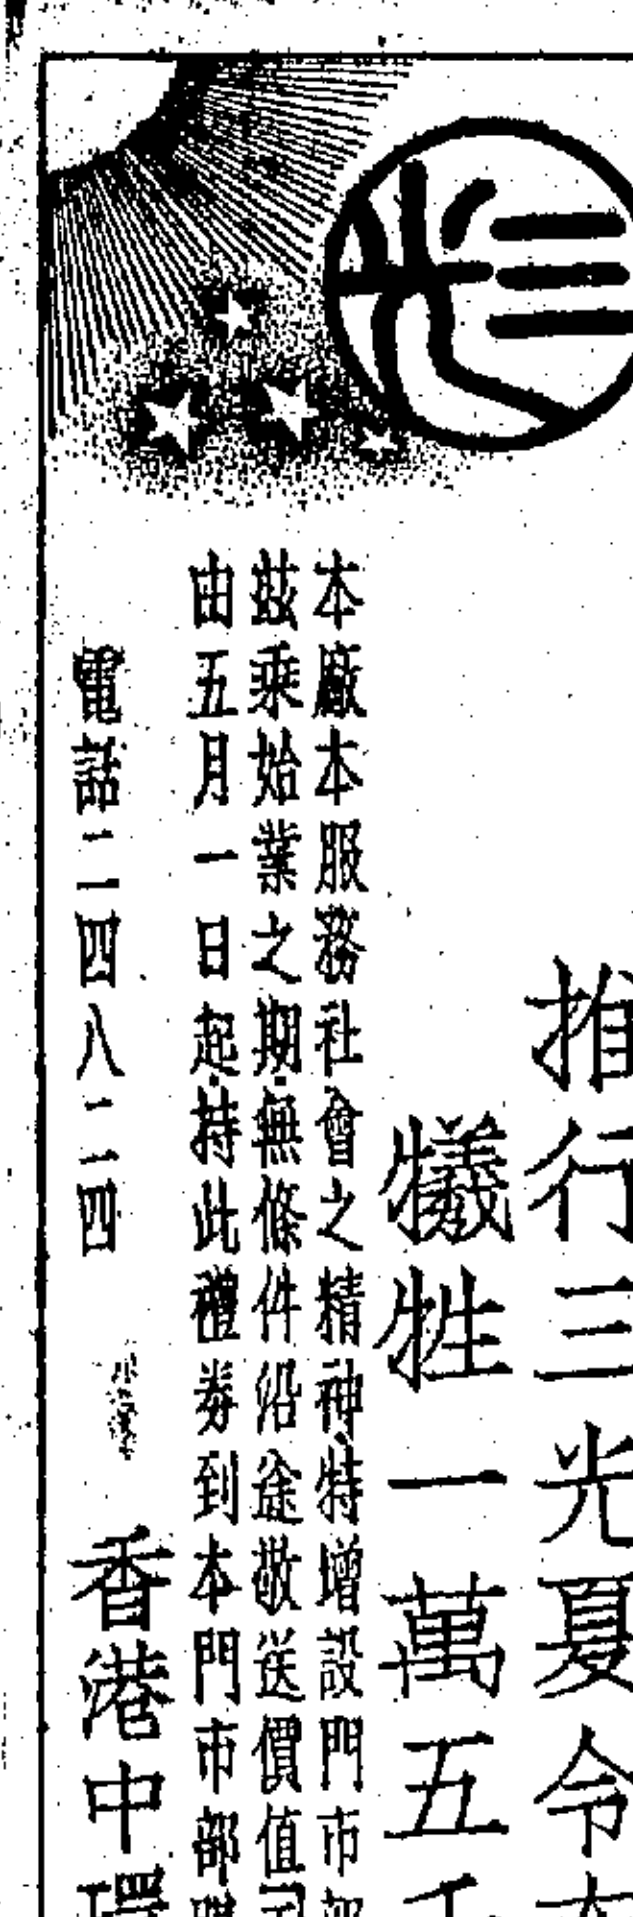 三光
推行三光夏令
犧牲一萬五千
本廠本服務社會之精神特增設門市部
玆乘始業之期無條件沿途敬送價值
由五月一日起持此禮券到本門市部
電話二四八一一四
香港中環